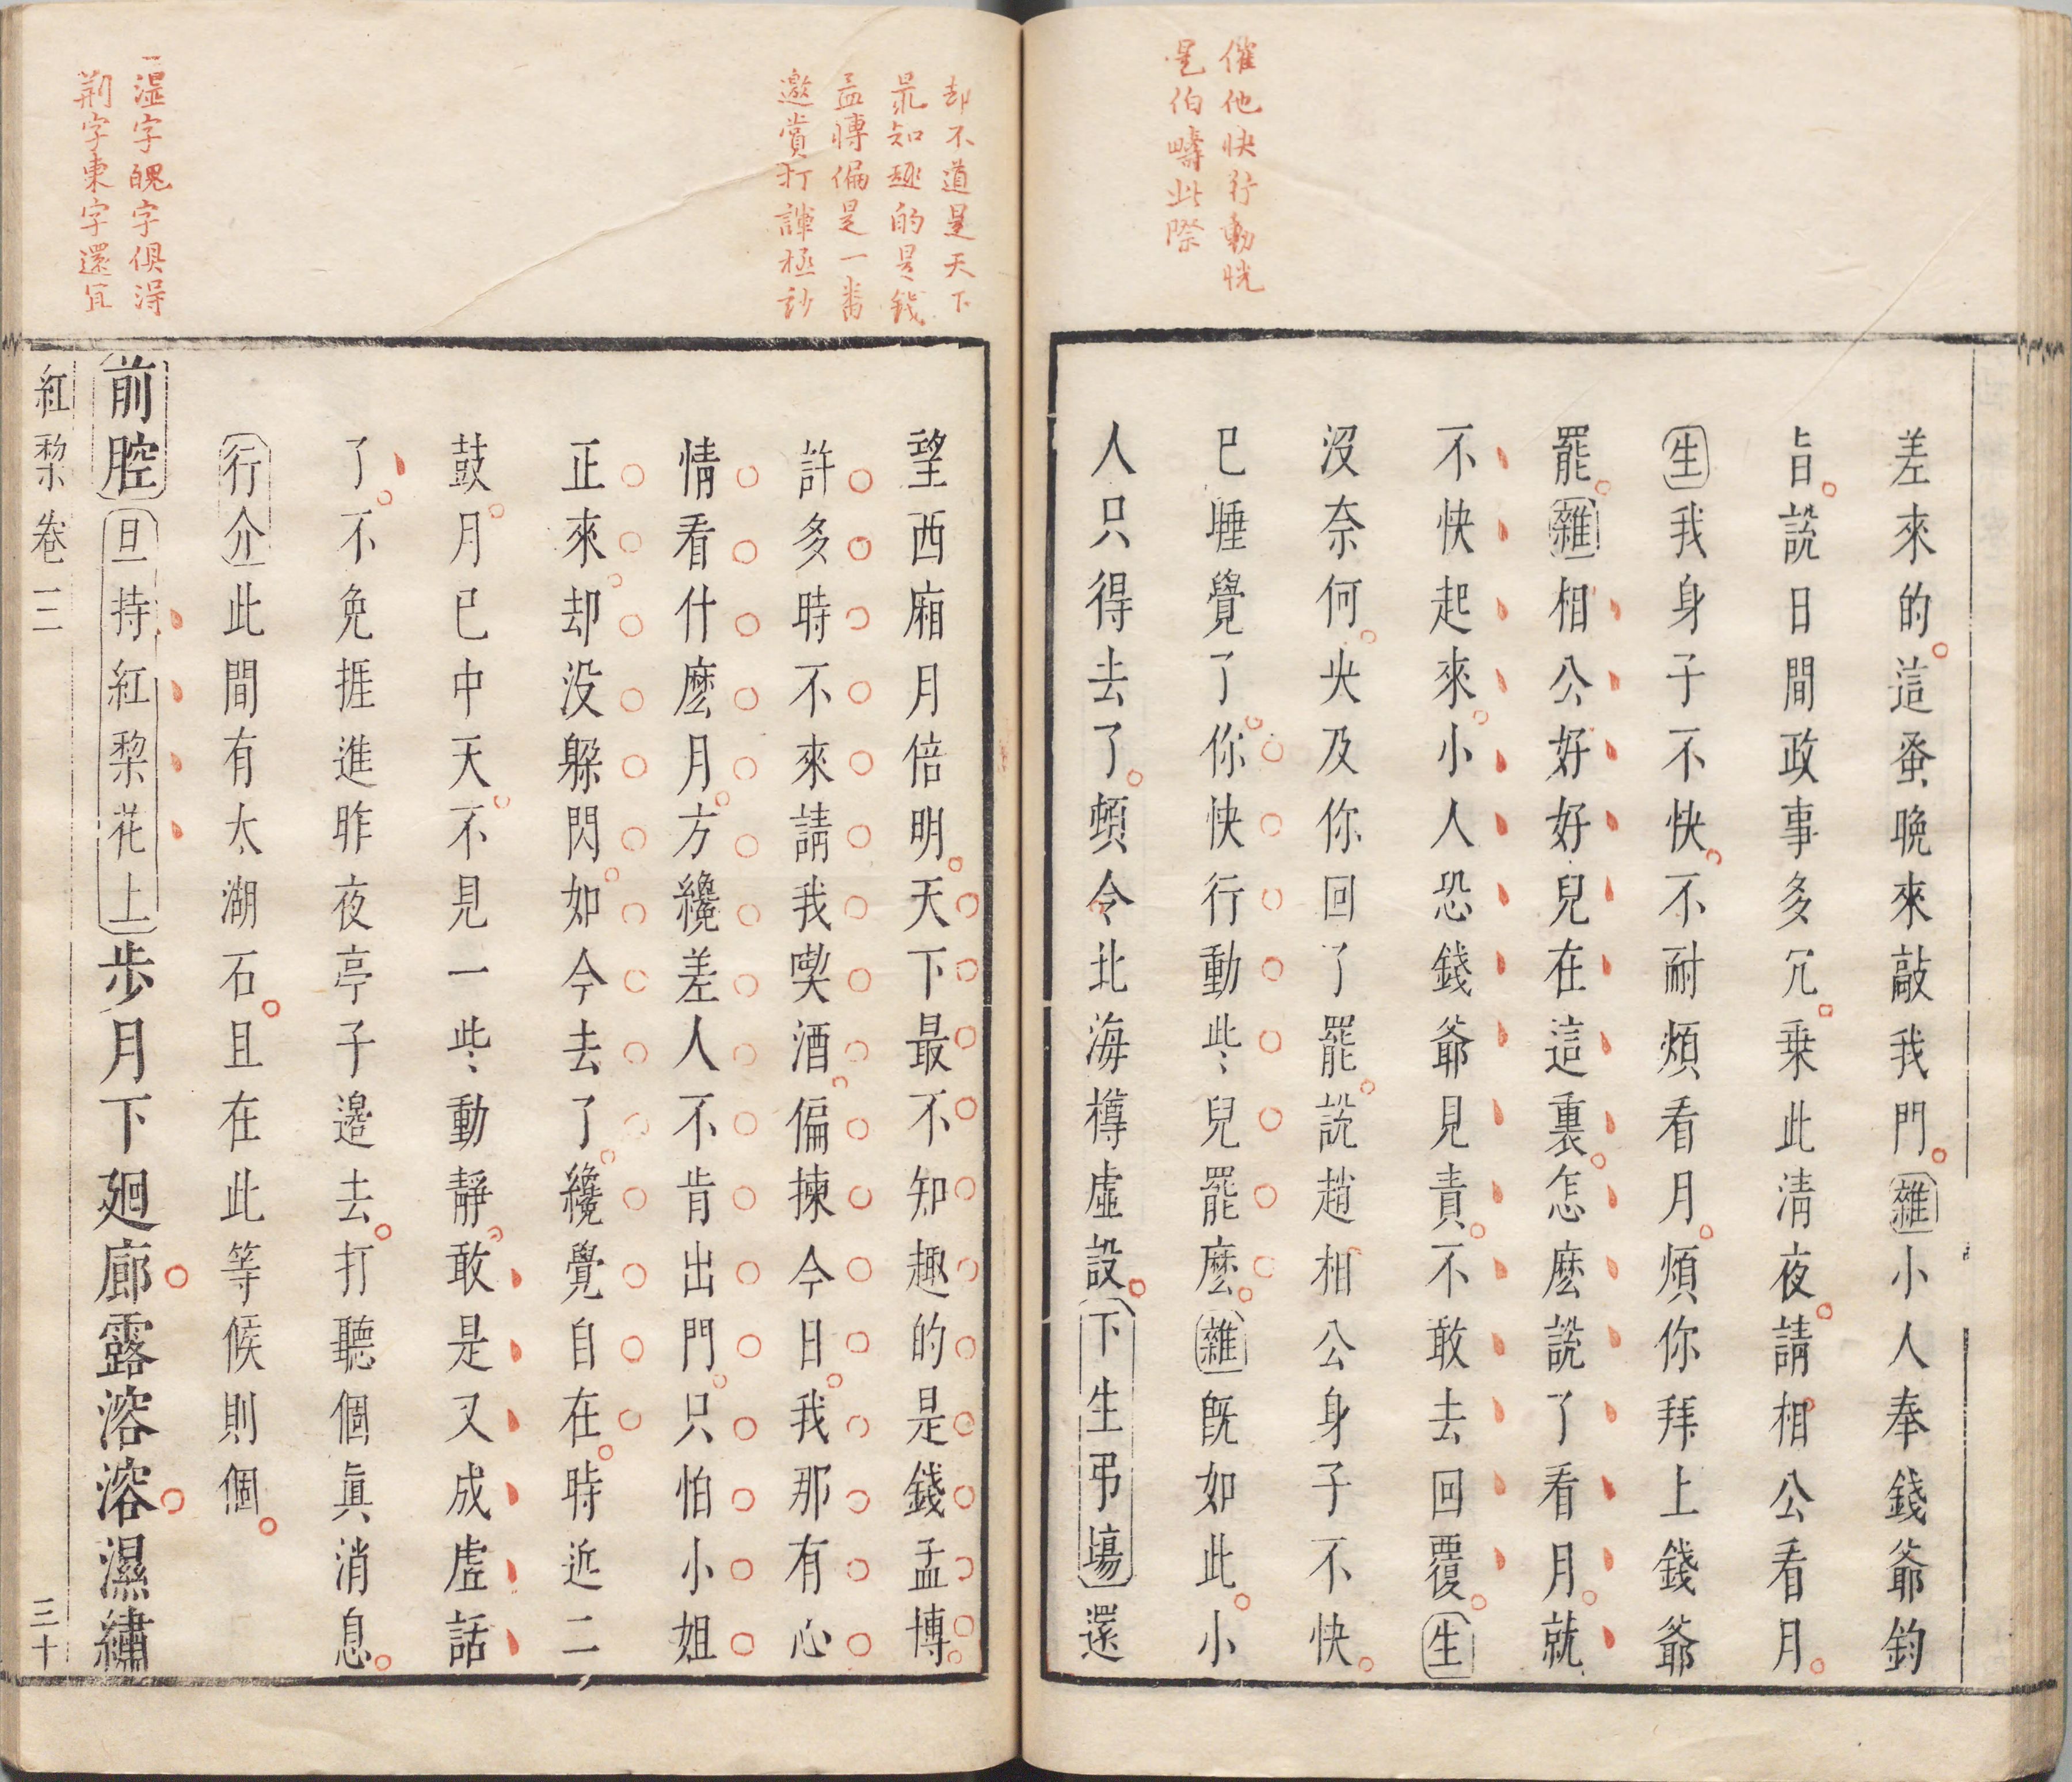 催他快行動恍
是伯疇此際
差來的這蚤晚來敲我門雜小人奉錢爺鈞
旨說日間政事多冗乗此清夜請相公看月
生我身子不快不耐煩看月煩你拜上錢爺
罷雜相公好好兒在這裏怎麽說了看月就
不快起來小人恐錢爺見責不敢去回覆生
沒奈何央及你回了罷說趙相公身子不快
已睡覺了你快行動些兒罷麽雜旣如此小
人只得去了頓令北海罇虛設下生弔場還
却不道是天下
最知趣的是錢
孟博偏是一番
邀賞打諢極妙
望西廂月倍明天下最不知趣的是錢孟博
許多時不來請我喫酒偏揀今日我那有心
情看什麽月方纔差人不肯出門只怕小姐
正來却没躱閃如今去了纔覺自在時近二
鼓月已中天不見一些動靜敢是又成虛話
了不免捱進昨夜亭子邊去打聽個眞消息
行介此間有太湖石且在此等候則個
一濕字魄字俱得
荆字東字還宜
前腔旦持紅棃花上步月下廻廊露溶溶濕繡
紅棃卷二
三十